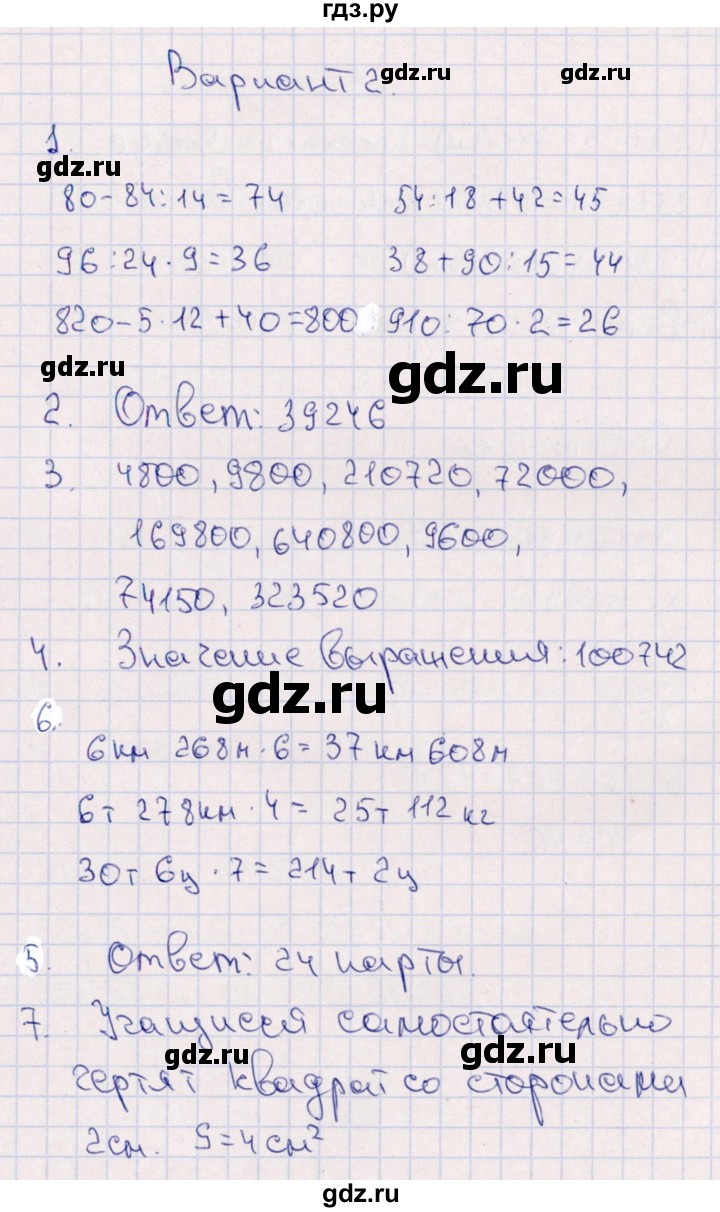 гдз.ру
Вариант 2.
gdz.ru gdz.ru
1.
gdz.ru
80-84:14=74 54:18+42=45
96:24·9=36 38+90:15=44
820-5·12+40=800 910:70·2=26
gdz.ru gdz.ru
2. Ответ: 39246
3. 4800, 9800, 210720, 72000,
169800, 640800, 9600,
74150, 323520
4. Значение выражения: 100742
gdz.ru
6.
6км 268м·6=37км 608м
6т 278км·4=25т 112кг
30т 6ц·7=214т 2ц
5. Ответ: 24 парты.
7. Учащиеся самостоятельно
gdz.ru gdz.ru
чертят квадрат со сторонами
2см. S=4см²
gdz.ru